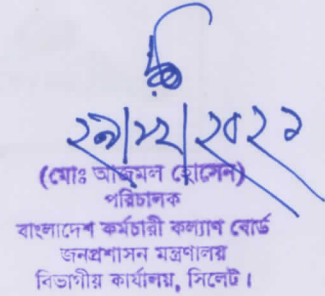 (মোঃ আজমল হোসেন)
পরিচালক
বাংলাদেশ কর্মচারী কল্যাণ বোর্ড
জনপ্রশাসন মন্ত্রণালয়
বিভাগীয় কার্যালয়, সিলেট।